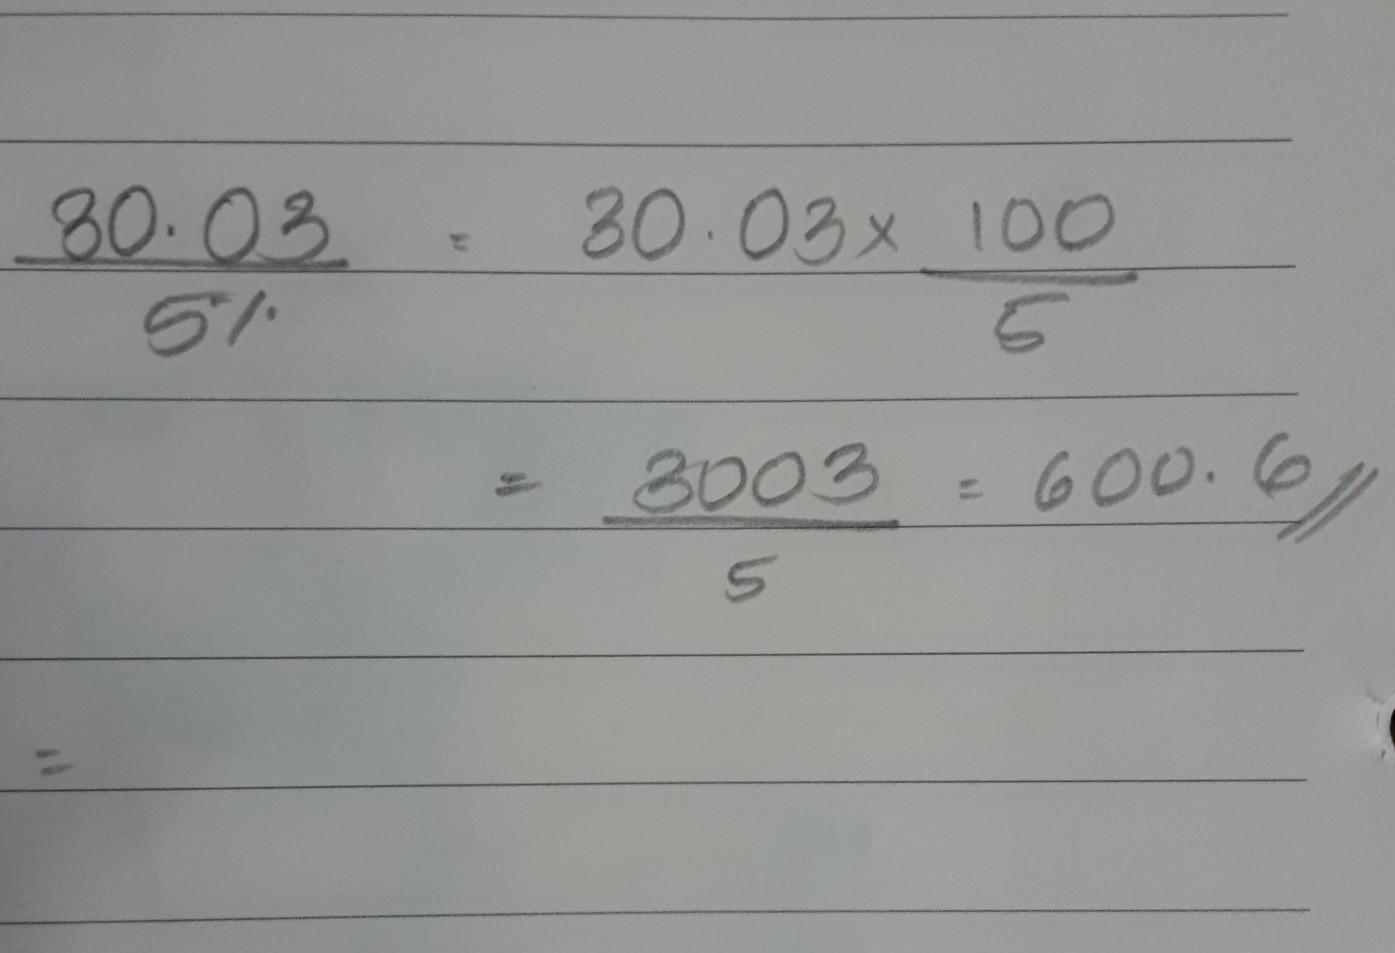 30.03 / 5% = 30.03 x 100 / 5
= 3003 / 5 = 600.6 //
=